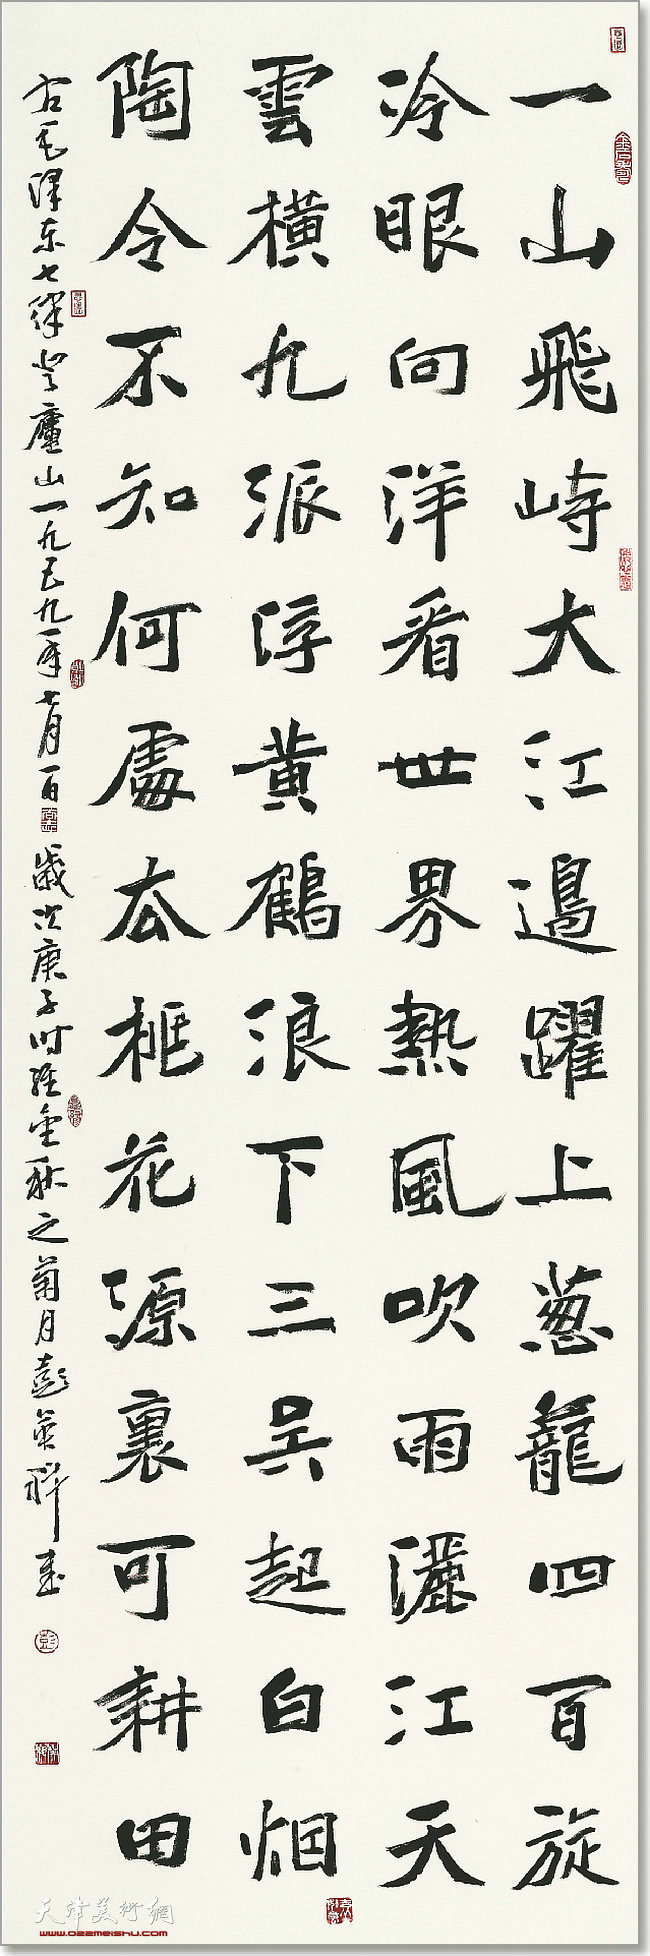 一山飛峙大江邊躍上葱籠四百旋
冷眼向洋看世界熱風吹雨灑江天
雲橫九派浮黃鶴浪下三吴起白烟
陶令不知何處去桃花源裏可耕田
右毛澤东七律登廬山一九五九年七月一日
歲次庚子时维金秋之菊月彭英科书
天津美術網
www.022meishu.com